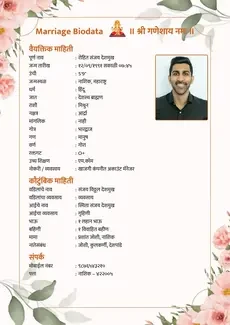 Marriage Biodata ॥ श्री गणेशाय नमः ॥
वैयक्तिक माहिती
पूर्ण नाव : रोहित संजय देशमुख
जन्म तारीख :
उंची : ५'७"
जन्मस्थळ : नाशिक, महाराष्ट्र
धर्म : हिंदू
जात : देशस्थ ब्राह्मण
राशी : मिथुन
नक्षत्र : आर्द्रा
मांगलिक : नाही
गोत्र : भारद्वाज
गण : मानुष
वर्ण : गोरा
रक्तगट : O+
उच्च शिक्षण : एम.कॉम
नोकरी / व्यवसाय : खाजगी कंपनीत अकाउंट मॅनेजर
कौटुंबिक माहिती
वडिलांचे नाव : संजय विठ्ठल देशमुख
वडिलांचा व्यवसाय :
आईचे नाव : स्मिता संजय देशमुख
आईचा व्यवसाय : गृहिणी
भाऊ : १ लहान भाऊ
बहिणी : १ विवाहित बहीण
मामा : प्रशांत जोशी, नाशिक
नातेसंबंध : जोशी, कुलकर्णी, देशपांडे
संपर्क
मोबाईल नंबर :
पत्ता : नाशिक – ४२२००५